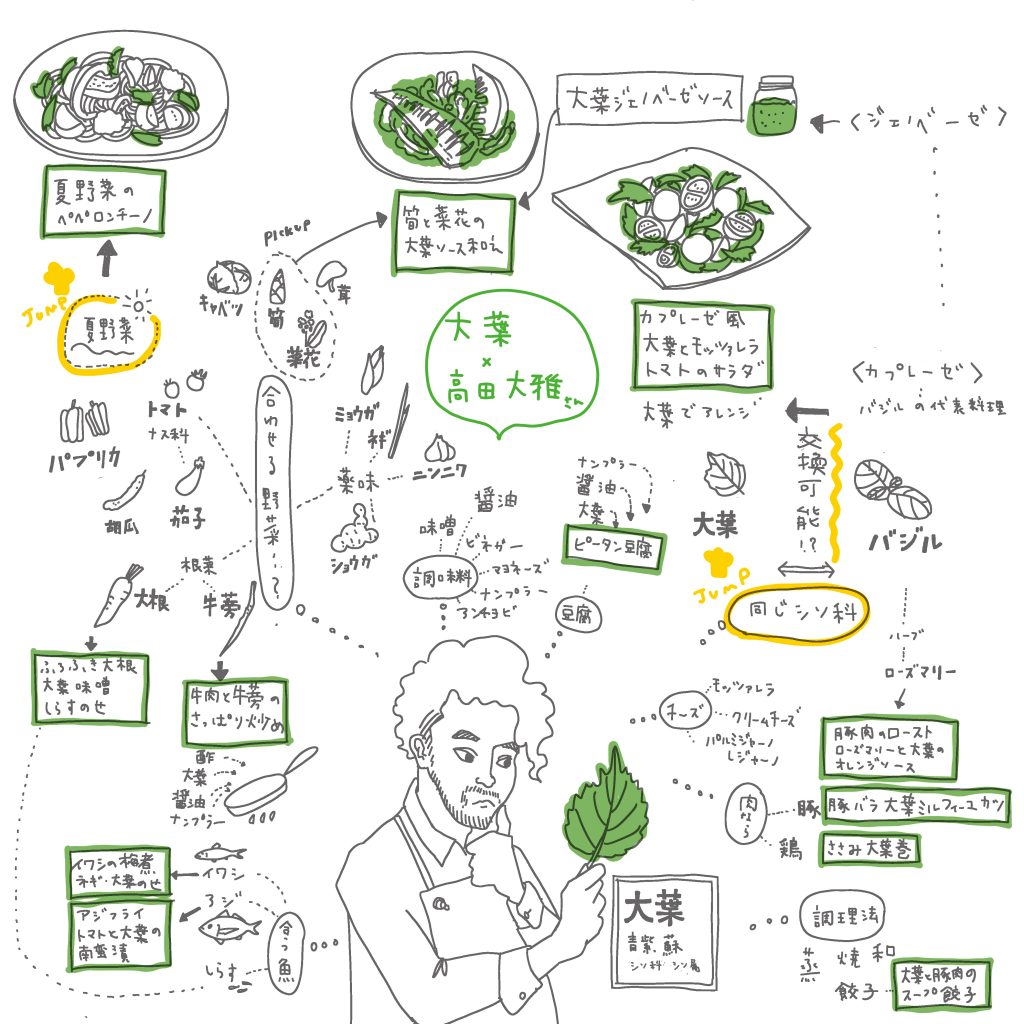 大葉ジェノベーゼソース
〈ジェノベーゼ〉
夏野菜の
ペペロンチーノ
筍と菜花の
大葉ソース和え
pickup
キャベツ
筍
茸
菜花
JUMP
夏野菜
大葉
×
高田大雅さん
カプレーゼ風
大葉とモッツァレラ
トマトのサラダ
大葉でアレンジ
〈カプレーゼ〉
バジルの代表料理
トマト
ナス科
パプリカ
胡瓜
茄子
合わせる野菜…?
ミョウガ
ネギ
ニンニク
薬味
ショウガ
根菜
大根
牛蒡
醤油
味噌
ビネガー
調味料
マヨネーズ
ナンプラー
アンチョビ
ナンプラー
醤油
大葉
ピータン豆腐
豆腐
大葉
交換可能!?
バジル
JUMP
同じシソ科
ハーブ
ローズマリー
ふろふき大根
大葉味噌
しらすのせ
牛肉と牛蒡の
さっぱり炒め
酢
大葉
醤油
ナンプラー
チーズ
モッツァレラ
クリームチーズ
パルミジャーノ
レジャーノ
豚肉のロースト
ローズマリーと大葉の
オレンジソース
肉なら
豚
豚バラ大葉ミルフィーユカツ
鶏
ささみ大葉巻
イワシの梅煮
ネギ・大葉のせ
イワシ
アジフライ
トマトと大葉の
南蛮漬
アジ
合う魚
しらす
大葉
青紫蘇
シソ科 シソ属
調理法
蒸
焼
和
餃子
大葉と豚肉の
スープ餃子